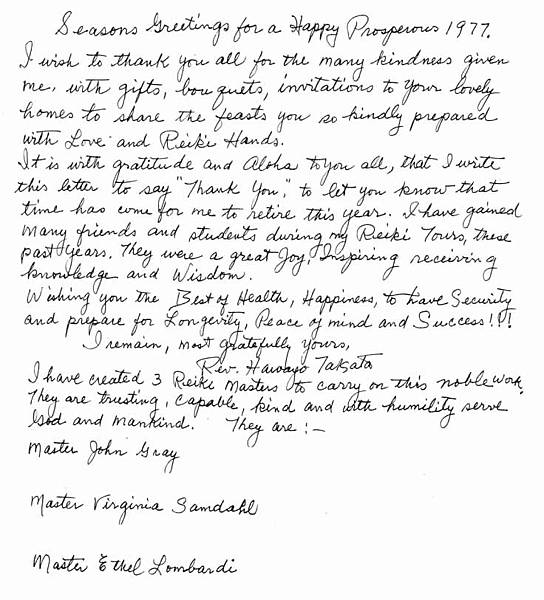 Seasons Greetings for a Happy Prosperous 1977.
I wish to thank you all for the many kindness given
me, with gifts, bouquets, invitations to your lovely
homes to share the feasts you so kindly prepared
with Love and Reiki Hands.
It is with gratitude and Aloha to you all, that I write
this letter to say "Thank You", to let you know that
time has come for me to retire this year. I have gained
many friends and students during my Reiki Tours, these
past years. They were a great Joy, Inspiring receiving
knowledge and Wisdom.
Wishing you the Best of Health, Happiness, to have Security
and prepare for Longevity, Peace of mind and Success!!!
I remain, most gratefully yours,
Rev. Hawayo Takata
I have created 3 Reiki Masters to carry on this noble work.
They are trusting, capable, kind and with humility serve
God and mankind. They are :-
Master John Gray
Master Virginia Samdahl
Master Ethel Lombardi